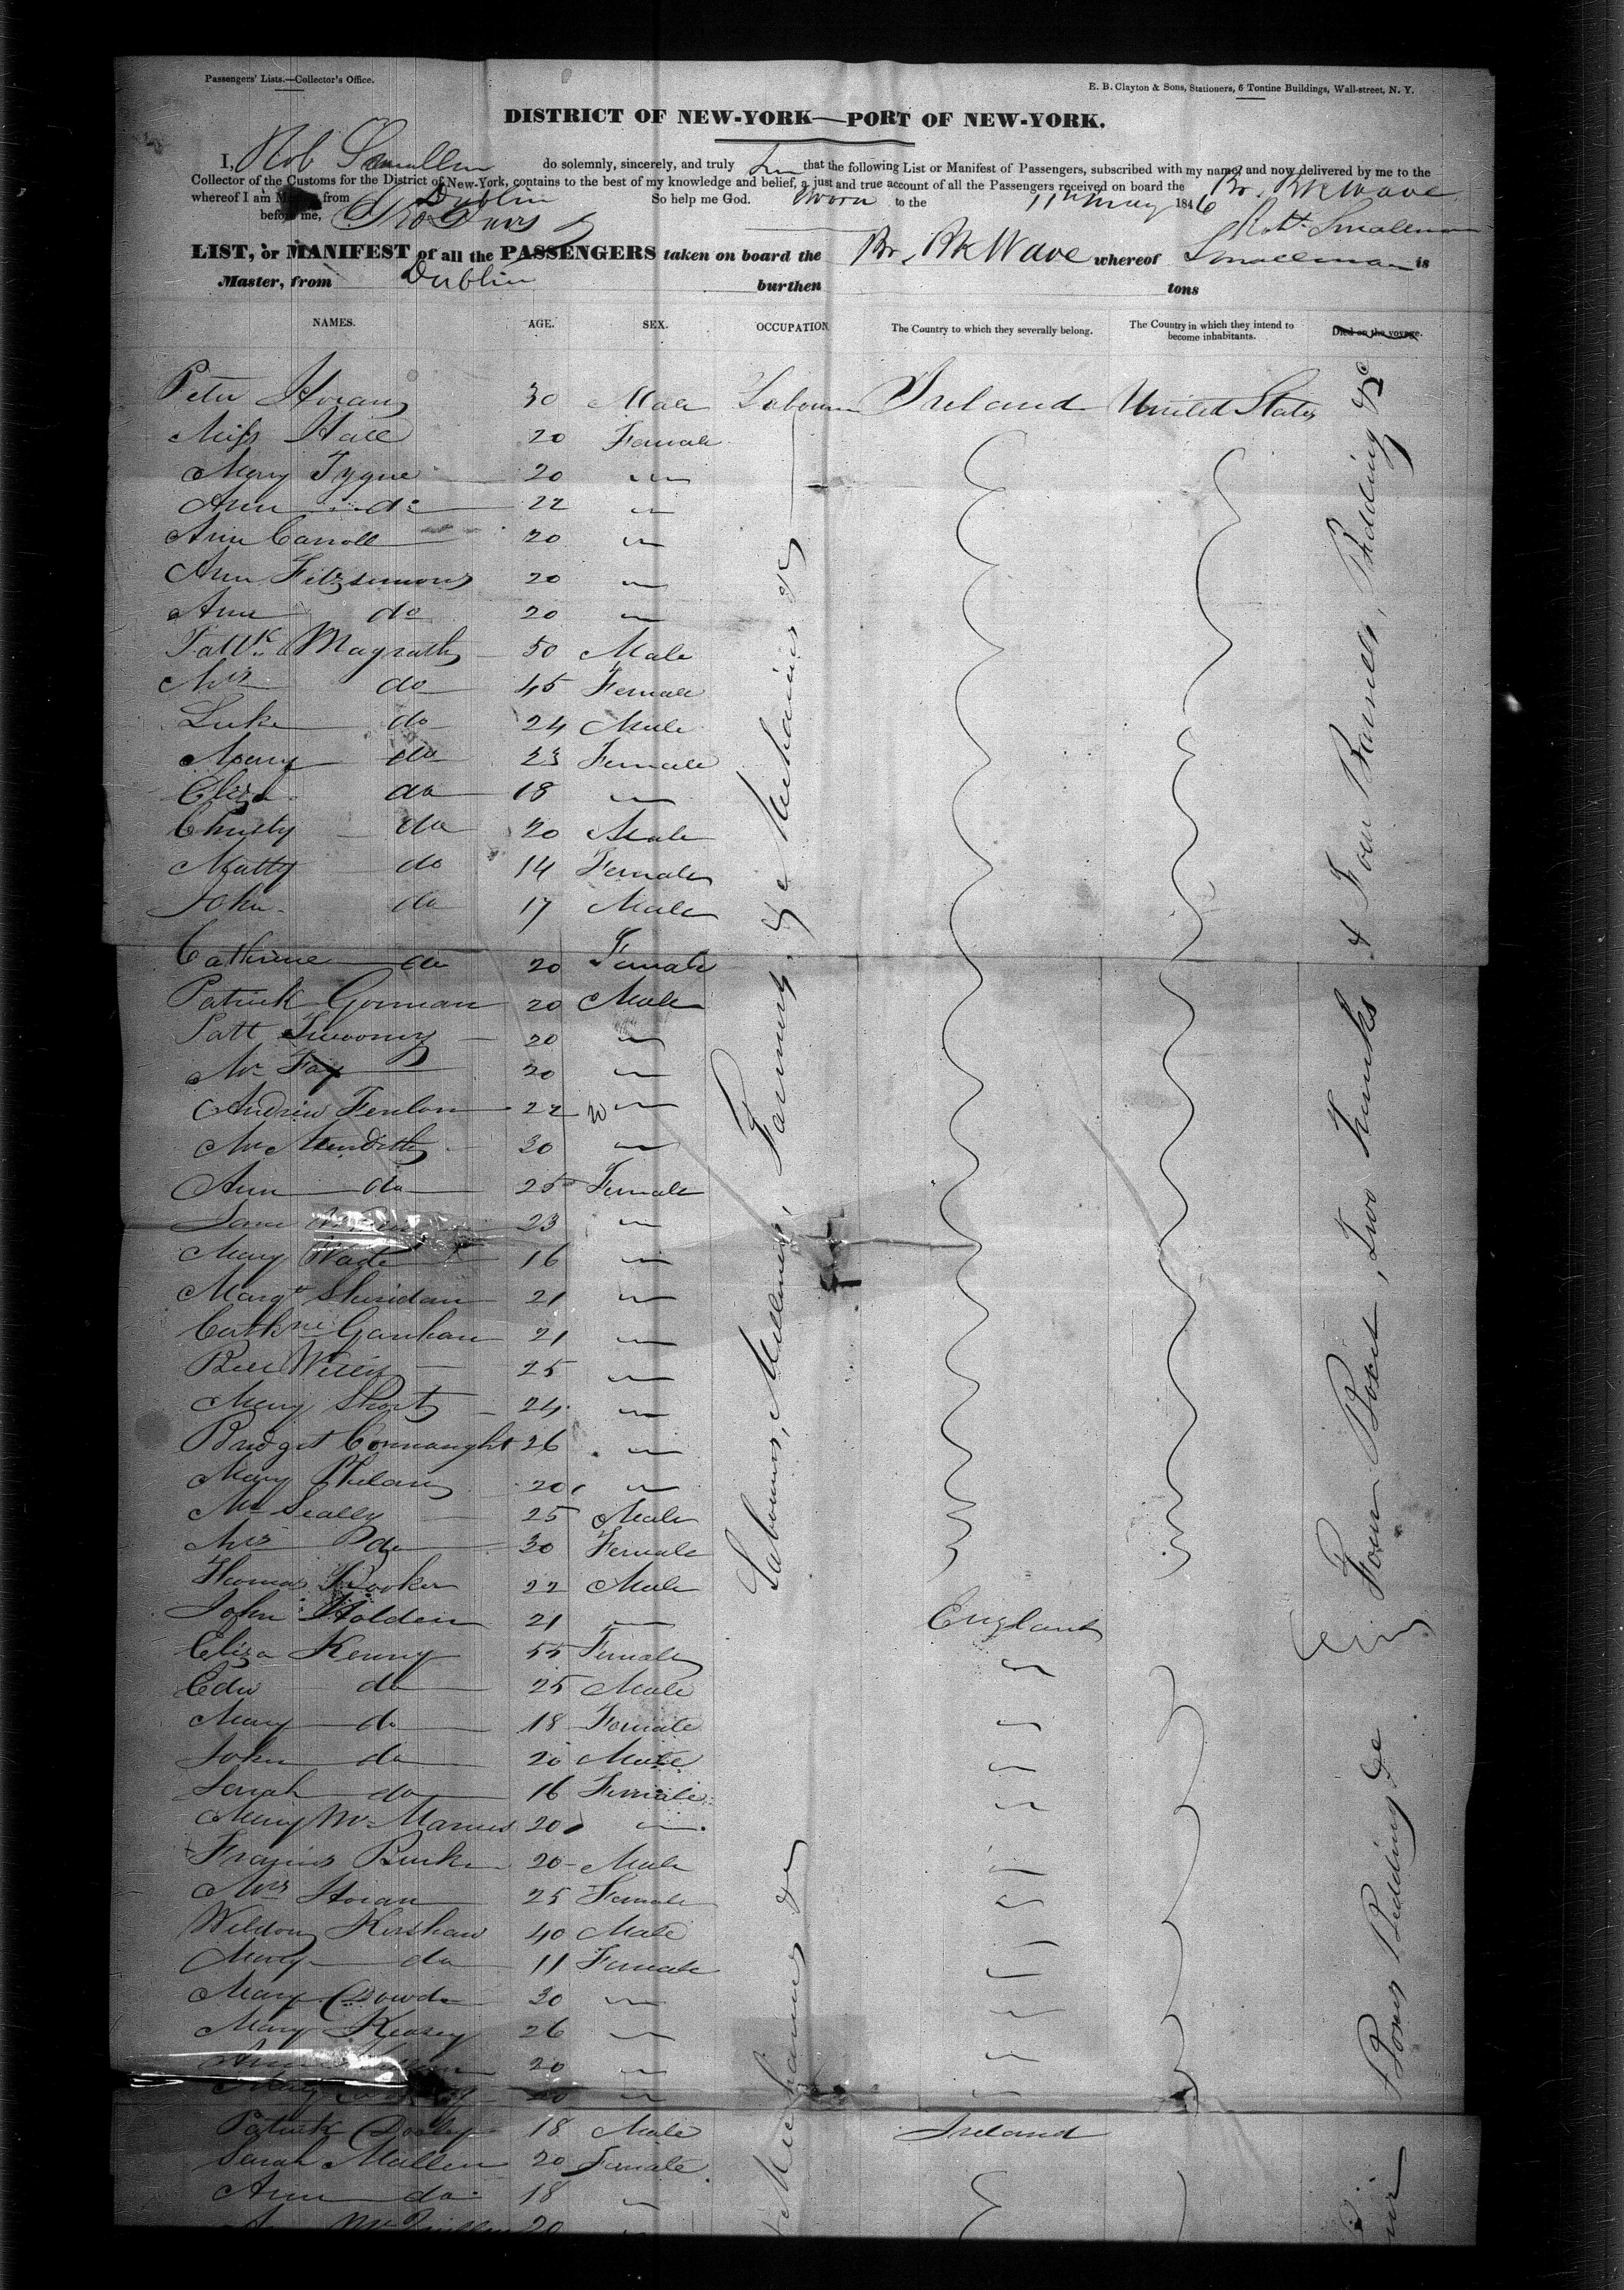 Passengers' Lists.—Collector's Office.
E. B. Clayton & Sons, Stationers, 6 Tontine Buildings, Wall-street, N. Y.
DISTRICT OF NEW-YORK—PORT OF NEW-YORK.
I, Rob Smallman do solemnly, sincerely, and truly that the following List or Manifest of Passengers, subscribed with my name, and now delivered by me to the
Collector of the Customs for the District of New-York, contains to the best of my knowledge and belief, a just and true account of all the Passengers received on board the Br. Bk Wave
whereof I am Master, from Dublin So help me God. Sworn to the 11th May 1846
before me, Robt Smallman
LIST, or MANIFEST of all the PASSENGERS taken on board the Br. Bk Wave whereof Smallman is
Master, from Dublin burthen tons
NAMES. AGE. SEX. OCCUPATION The Country to which they severally belong. The Country in which they intend to become inhabitants. Died on the voyage.
Peter Horan 30 Male Labourer Ireland United States
Miss Hall 20 Female
Mary Tygue 20 "
Ann do 22 "
Ann Carroll 20 "
Ann Fitzsimons 20 "
Ann do 20 "
Pattk Magrath 50 Male
Mrs do 45 Female
Luke do 24 Male
Mary do 23 Female
Eliza do 18 "
Christy do 20 Male
Matty do 14 Female
John do 17 Male
Cathrine do 20 Female
Patrick Gorman 20 Male
Patt 20 "
Mr Fay 20 "
Andrew Fenlon 22 "
Mr Meredith 30 "
Ann do 25 Female
Jane 23 "
Mary Wade 16 "
Margt Sheridan 21 "
Cathne Ganhan 21 "
25 "
Mary Short 24 "
Bridget Connaught 26 "
Mary Phelan 20 "
Mr Scally 25 Male
Mrs do 30 Female
Thomas Rooker 22 Male
John Holden 21 " England
Eliza Kenny 55 Female "
Edw do 25 Male
Mary do 18 Female "
John do 20 Male "
Sarah do 16 Female "
Mary McManus 20 "
Francis Burke 20 Male "
Mrs Horan 25 Female "
Weldon Kershaw 40 Male "
Mary do 11 Female "
Mary Dowd 30 " "
Mary Keasey 26 "
Ann 20 " "
Mary 20 " "
Patrick Dooley 18 Male Ireland
Sarah Mullen 20 Female
Ann do 18 "
20 "
Labourers, Milliners, Farmers, &c Mechanics &c
Mechanics &c
Four Boxes, Two Trunks & Four Barrels, Bedding &c
Boxes Bedding &c